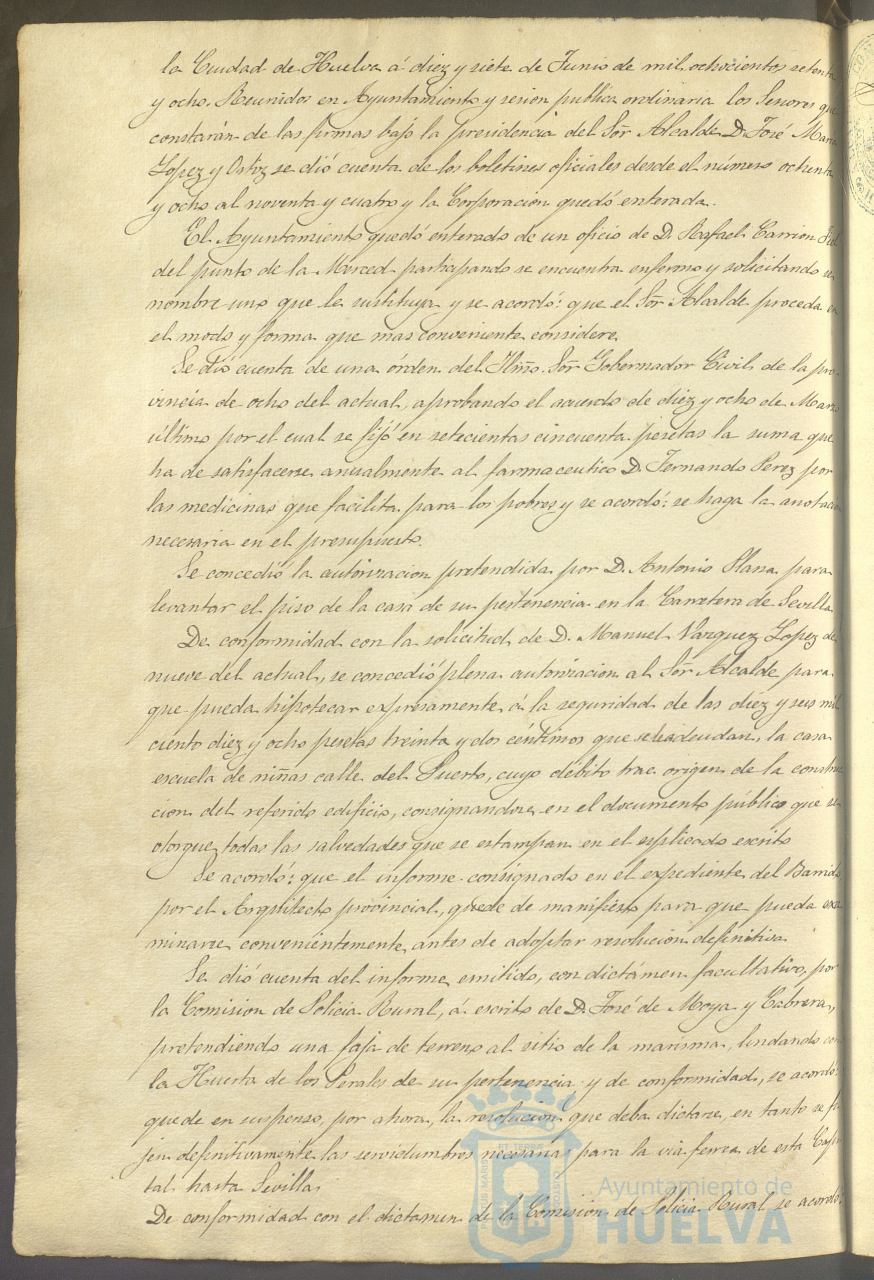 la Ciudad de Huelva á diez y siete de Junio de mil ochocientos setenta
y ocho. Reunidos en Ayuntamiento y sesion publica ordinaria los Señores que
constarán de las firmas bajo la presidencia del Sor Alcalde D. José Maria
Lopez y Ortiz se dió cuenta de los boletines oficiales desde el número ochenta
y ocho al noventa y cuatro y la Corporacion quedó enterada.
El Ayuntamiento quedó enterado de un oficio de D. Rafael Carrion Fiel
del punto de la Merced participando se encuentra enfermo y solicitando se
nombre uno que le sustituya y se acordó: que el Sor Alcalde proceda en
el modo y forma que mas conveniente considere.
Se dió cuenta de una órden del Iltmo. Sor Gobernador Civil de la pro-
vincia de ocho del actual, aprobando el acuerdo de diez y ocho de Marzo
último por el cual se fijó en setecientas cincuenta pesetas la suma que
ha de satisfacerse anualmente al farmaceutico D. Fernando Perez por
las medicinas que facilita para los pobres y se acordó: se haga la anotacion
necesaria en el presupuesto.
Se concedió la autorizacion pretendida por D. Antonio Plana para
levantar el piso de la casa de su pertenencia en la Carretera de Sevilla
De conformidad con la solicitud de D. Manuel Vazquez Lopez de
nueve del actual, se concedió plena autorizacion al Sor Alcalde para
que pueda hipotecar expresamente á la seguridad de las diez y seis mil
ciento diez y ocho pesetas treinta y dos céntimos que se le adeudan, la casa
escuela de niñas calle del Puerto, cuyo débito trae origen de la construc
cion del referido edificio, consignandose en el documento público que se
otorgue, todas las salvedades que se estampan en el esplicado escrito
Se acordó: que el informe consignado en el expediente del Barrido
por el Arquitecto provincial, quede de manifiesto para que pueda exa
minarse convenientemente, antes de adoptar resolucion definitiva
Se dió cuenta del informe emitido, con dictámen facultativo, por
la Comision de Policia Rural, á escrito de D. José de Moya y Cabrera,
pretendiendo una faja de terreno al sitio de la marisma, lindando con
la Huerta de los Perales de su pertenencia y de conformidad, se acordó:
quede en suspenso, por ahora, la resolucion que deba dictarse, en tanto se fi
jen definitivamente las servidumbres necesarias para la via ferrea de esta Capi
tal hasta Sevilla,
De conformidad con el dictamen de la Comision de Policia Rural se acordó:
Ayuntamiento de
HUELVA